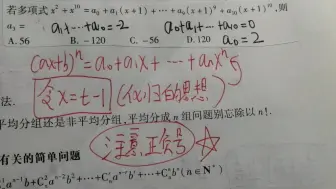 若多项式 x²+x¹⁰=a₀+a₁(x+1)+⋯+a₉(x+1)⁹+a₁₀(x+1)¹⁰,则
a₁=
a₁+⋯+a₁₀=-2
a₀+a₁+⋯+a₁₀=0
A. 56 B. -120 C. -56 D. 120
a₀=2
(ax+b)ⁿ=a₀+a₁x+⋯+aₙxⁿ
令x=t-1 (化归的思想)
法.
平均分组还是非平均分组,平均分成 n 组问题别忘除以 n!.
注意正负号 ☆
有关的简单问题
aⁿ⁻¹b+Cₙ²aⁿ⁻²b²+⋯+Cₙʳaⁿ⁻ʳbʳ+⋯+Cₙⁿbⁿ(n∈N*)